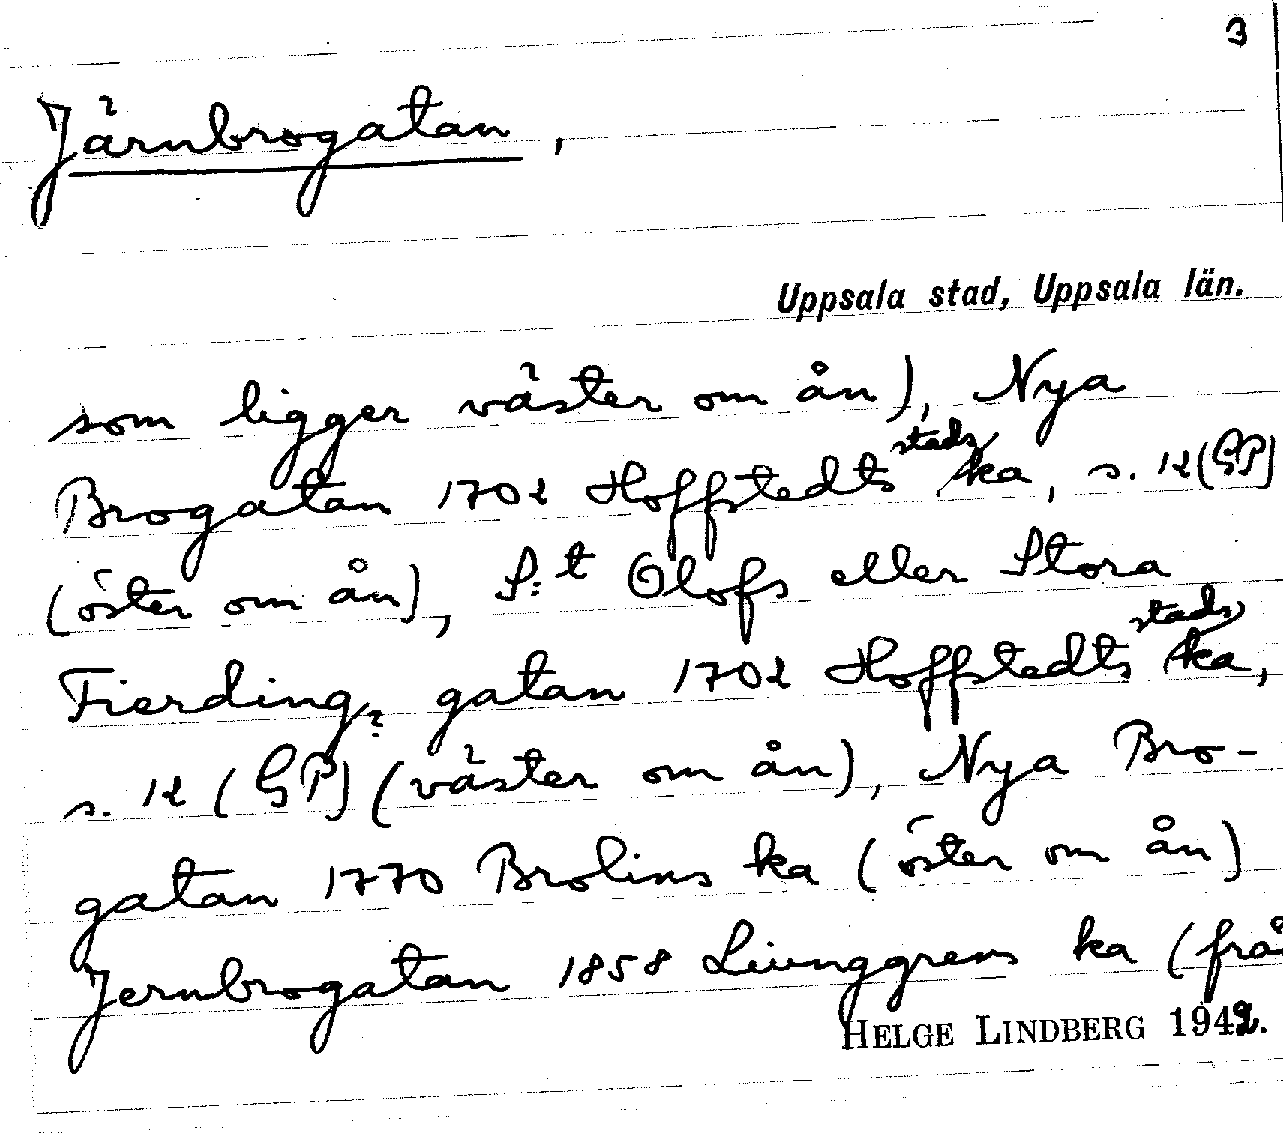 3
Järnbrogatan,
Uppsala stad, Uppsala län.
som ligger väster om ån), Nya
Brogatan 1702 Hoffstedts stadska, s. 12 (GP)
(öster om ån), S:t Olofs eller Stora
Fierding, gatan 1702 Hoffstedts stadska,
s. 12 (GP) (väster om ån), Nya Bro-
gatan 1770 Brolins ka (öster om ån)
Jernbrogatan 1858 Liunggrens ka (från
HELGE LINDBERG 1942.